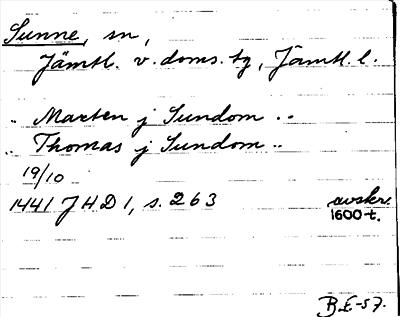 Sunne, sn,
Jämtl. v. doms. tg, Jämtl. l.
.. Marten j Sundom ..
.. Thomas j Sundom ..
19/10
1441 JHD 1, s. 263 avskr.
1600-t.
B.E-57.